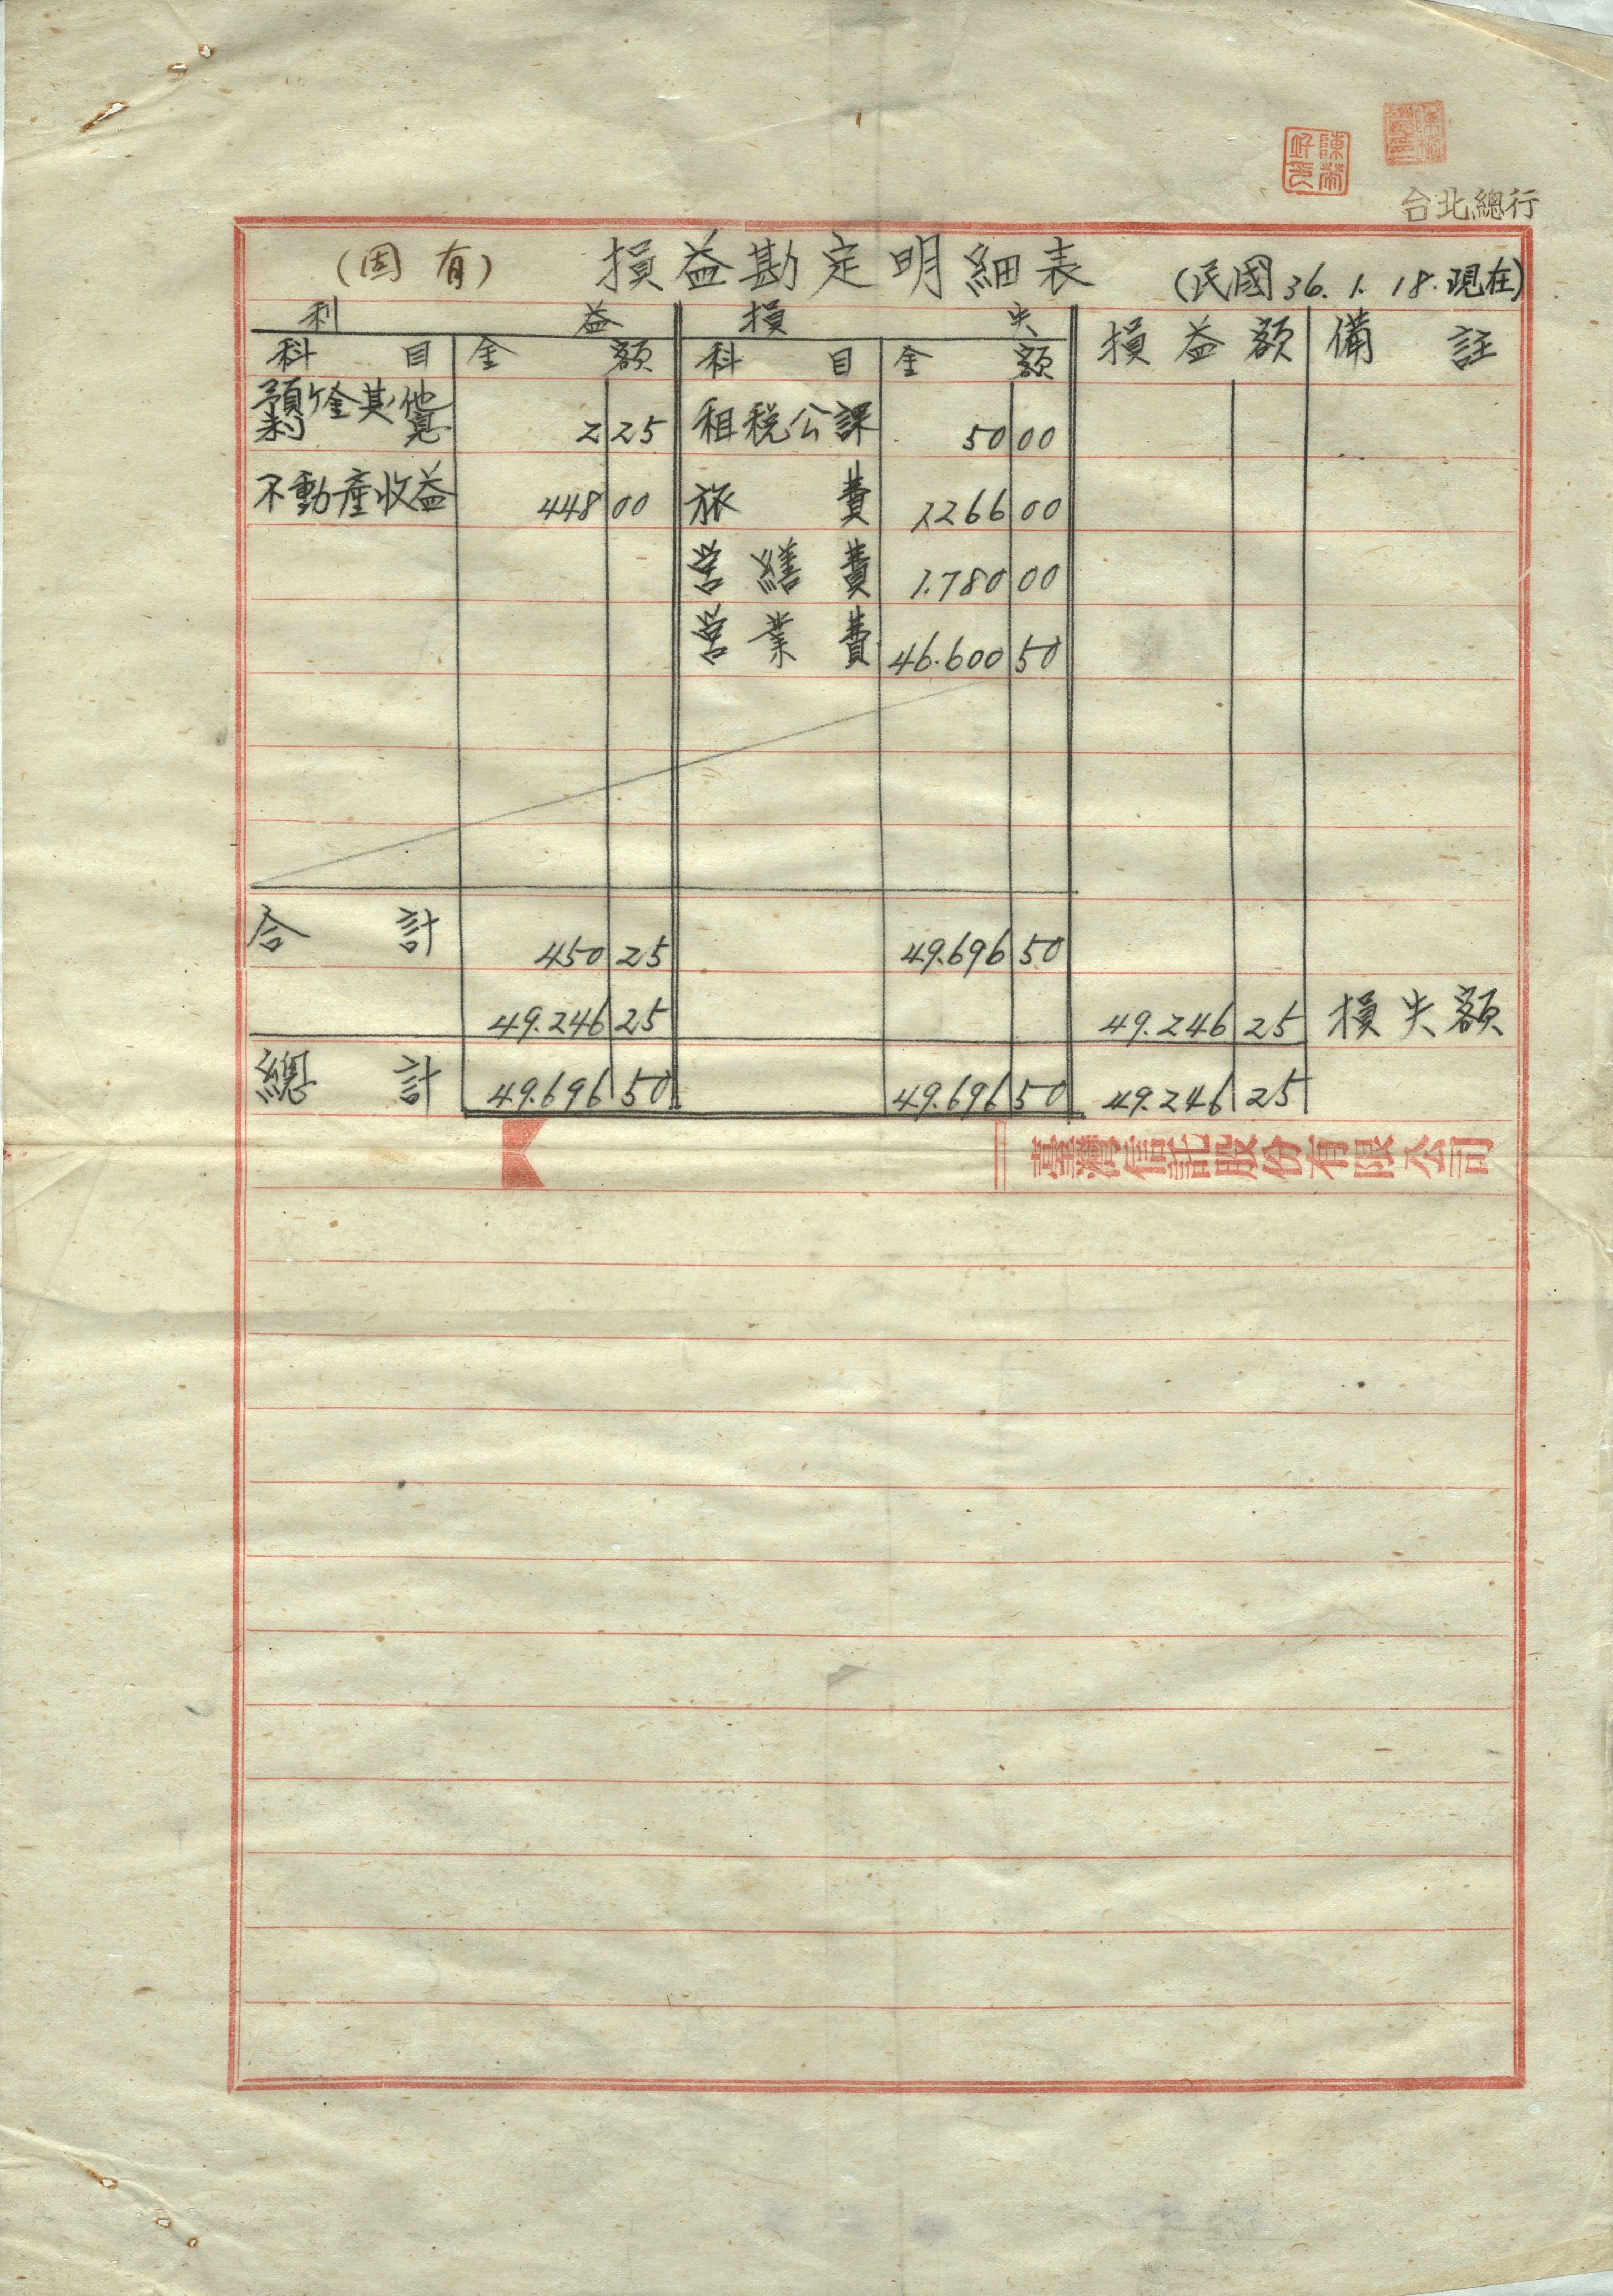 台北總行
(固有) 損益勘定明細表 (民國36.1.18.現在)
利益 損失 損益額 備註
科目 金額 科目 金額
預ケ金其他利息 2 25 租稅公課 50 00
不動產收益 448 00 旅費 1.266 00
営繕費 1.780 00
営業費 46.600 50
合計 450 25 49.696 50
49.246 25 49.246 25 損失額
總計 49.696 50 49.696 50 49.246 25
臺灣信託股份有限公司